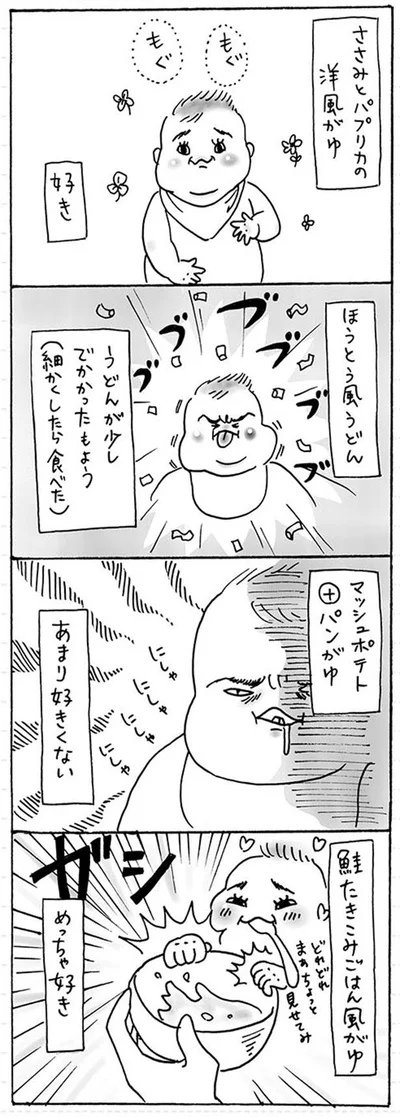 ささみとパプリカの
洋風がゆ
もぐ
もぐ
好き
ほうとう風うどん
ブブブ
ブブブ
うどんが少し
でかかったもよう
(細かくしたら食べた)
マッシュポテト
⊕パンがゆ
にしゃ
にしゃ
にしゃ
にしゃ
あまり好きくない
鮭たきこみごはん風がゆ
どれどれ
まぁちょっと
見せてみ
ガシ
めっちゃ好き